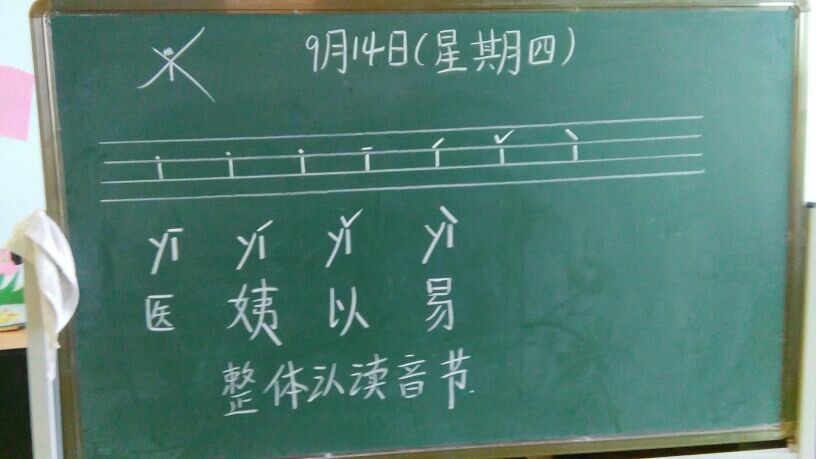 9月14日(星期四)
i i i ī í ǐ ì
yī yí yǐ yì
医 姨 以 易
整体认读音节.